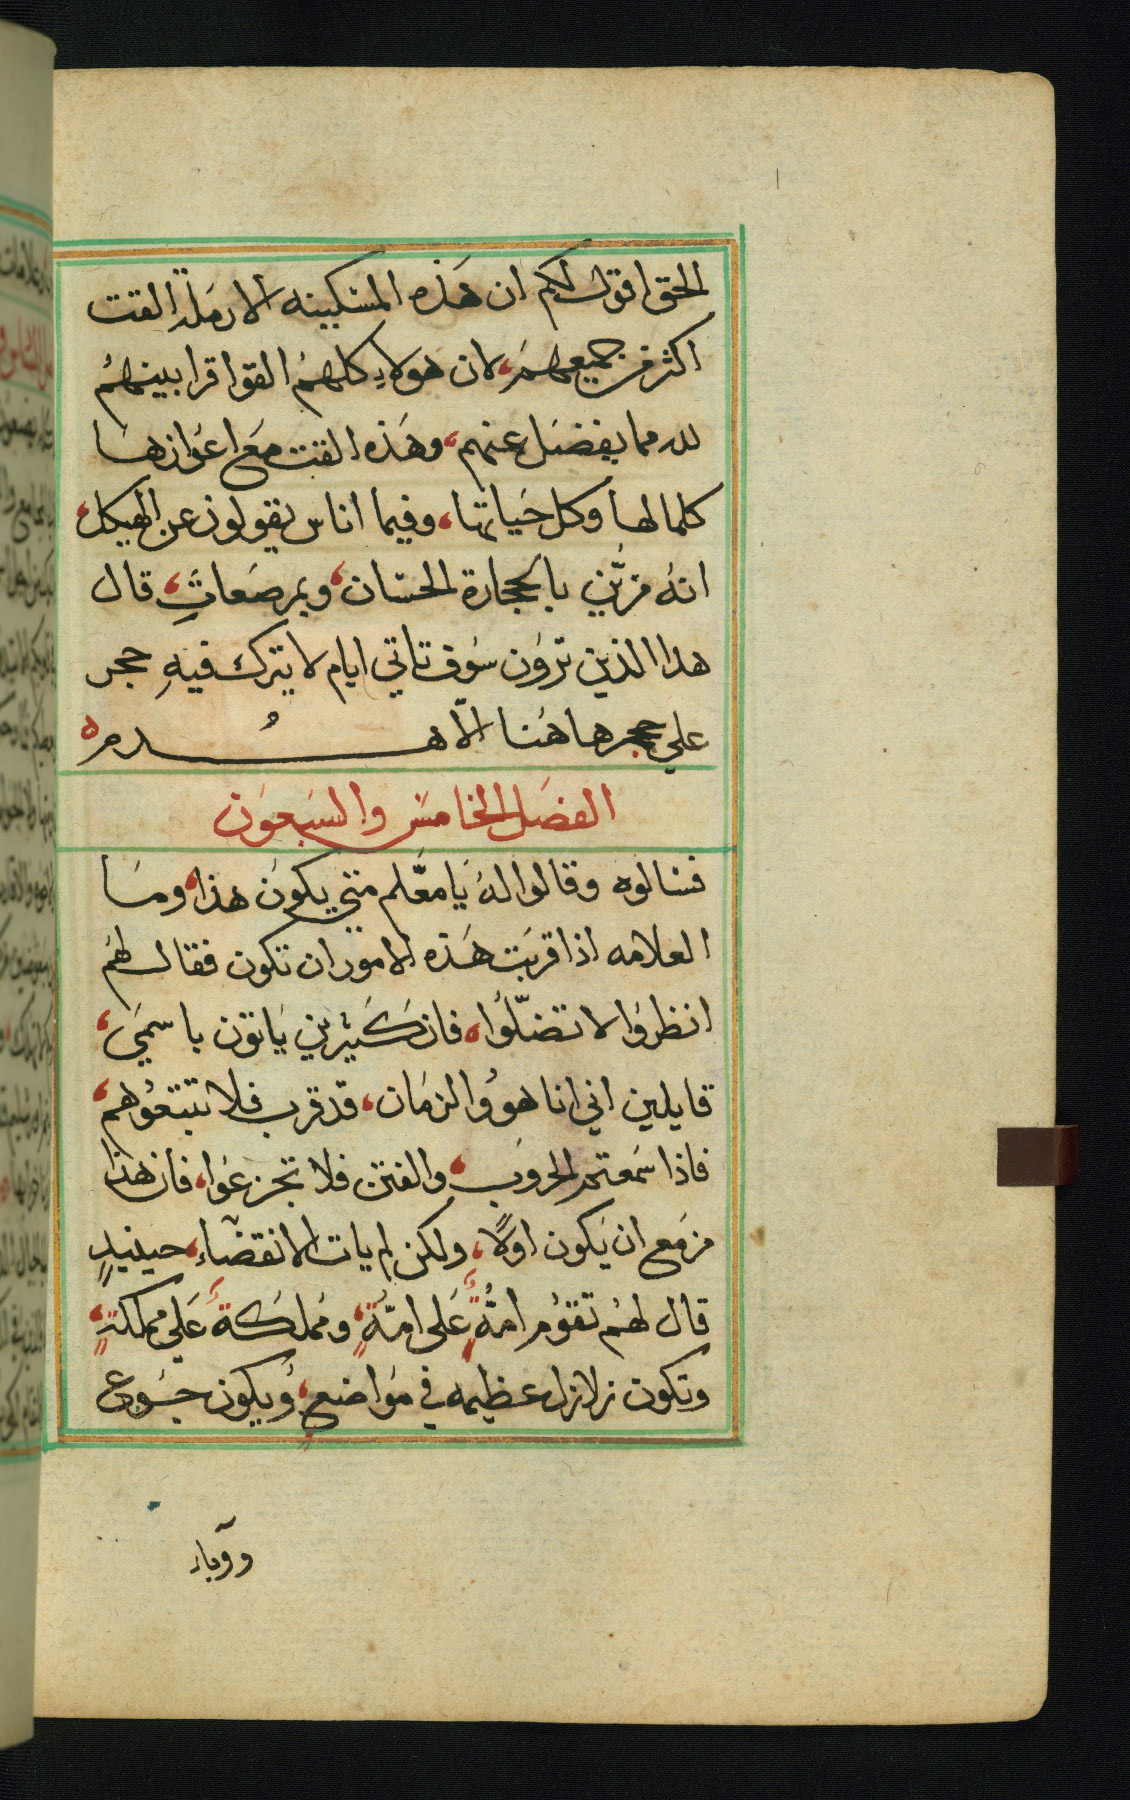 الحق اقول لكم ان هَذه المسْكينه الارمَلة القت
اكثر من جميعهمْ، لان هَولاءِ كلهمُ القوا قرابينهمُ
لله مما يفضَل عنهم، وهَذه القت مَع اعوَازهَا
كلما لهَا وكل حَياتهَا، وفيما اناس يقولون عن الهيكل،
انهُ مزيّن بالحجارة الحسَان، وبمرصَعاتٍ، قال
هذا الذين ترَون سَوف تاتي ايام لا يترك فيهِ حجر
علي حجر هاهُنا الّا هُدم
الفصَل الخامسَ والسَبعوَن
فسَالوه وقالوا لهُ يَا معَّلم متي يكوَن هذا، ومَا
العلامه اذا قربَت هَذه الاموَر ان تكون فقال لهُم
انظروُا لا تضلّوُا، فان كَثيرين يَاتوَن باسمَي،
قايلين اني انا هوَ وُالزمَان، قد قرب فلا تتبعُوهم،
فاذا سَمعتم الحروَب، والفتن فلا تجزعَوا، فان هذا
مزمَع ان يَكون اولًا، ولكن لم يات الانقضَآء، حينيدٍ
قال لهمُ تقومُ امّةٌ عَلى امّةٍ، ومَملكَة عَلي مملكةٍ،
وتكون زلازل عظيمه في موَاضعٍ، وُيكون جَوع
ووبآء